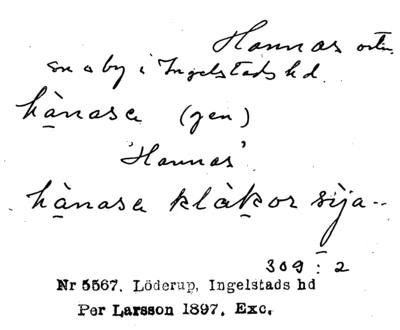 Hannas
en by i Ingelstads hd.
hànasa (gen)
'Hannas'
hànasa klàkor sija..
309 : 2
Nr 5567. Löderup, Ingelstads hd
Per Larsson 1897. Exc.